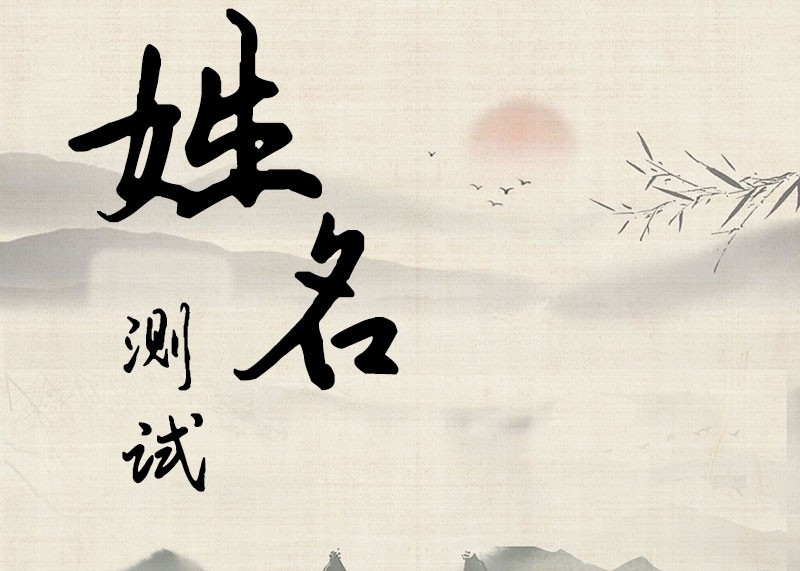 姓名
测试